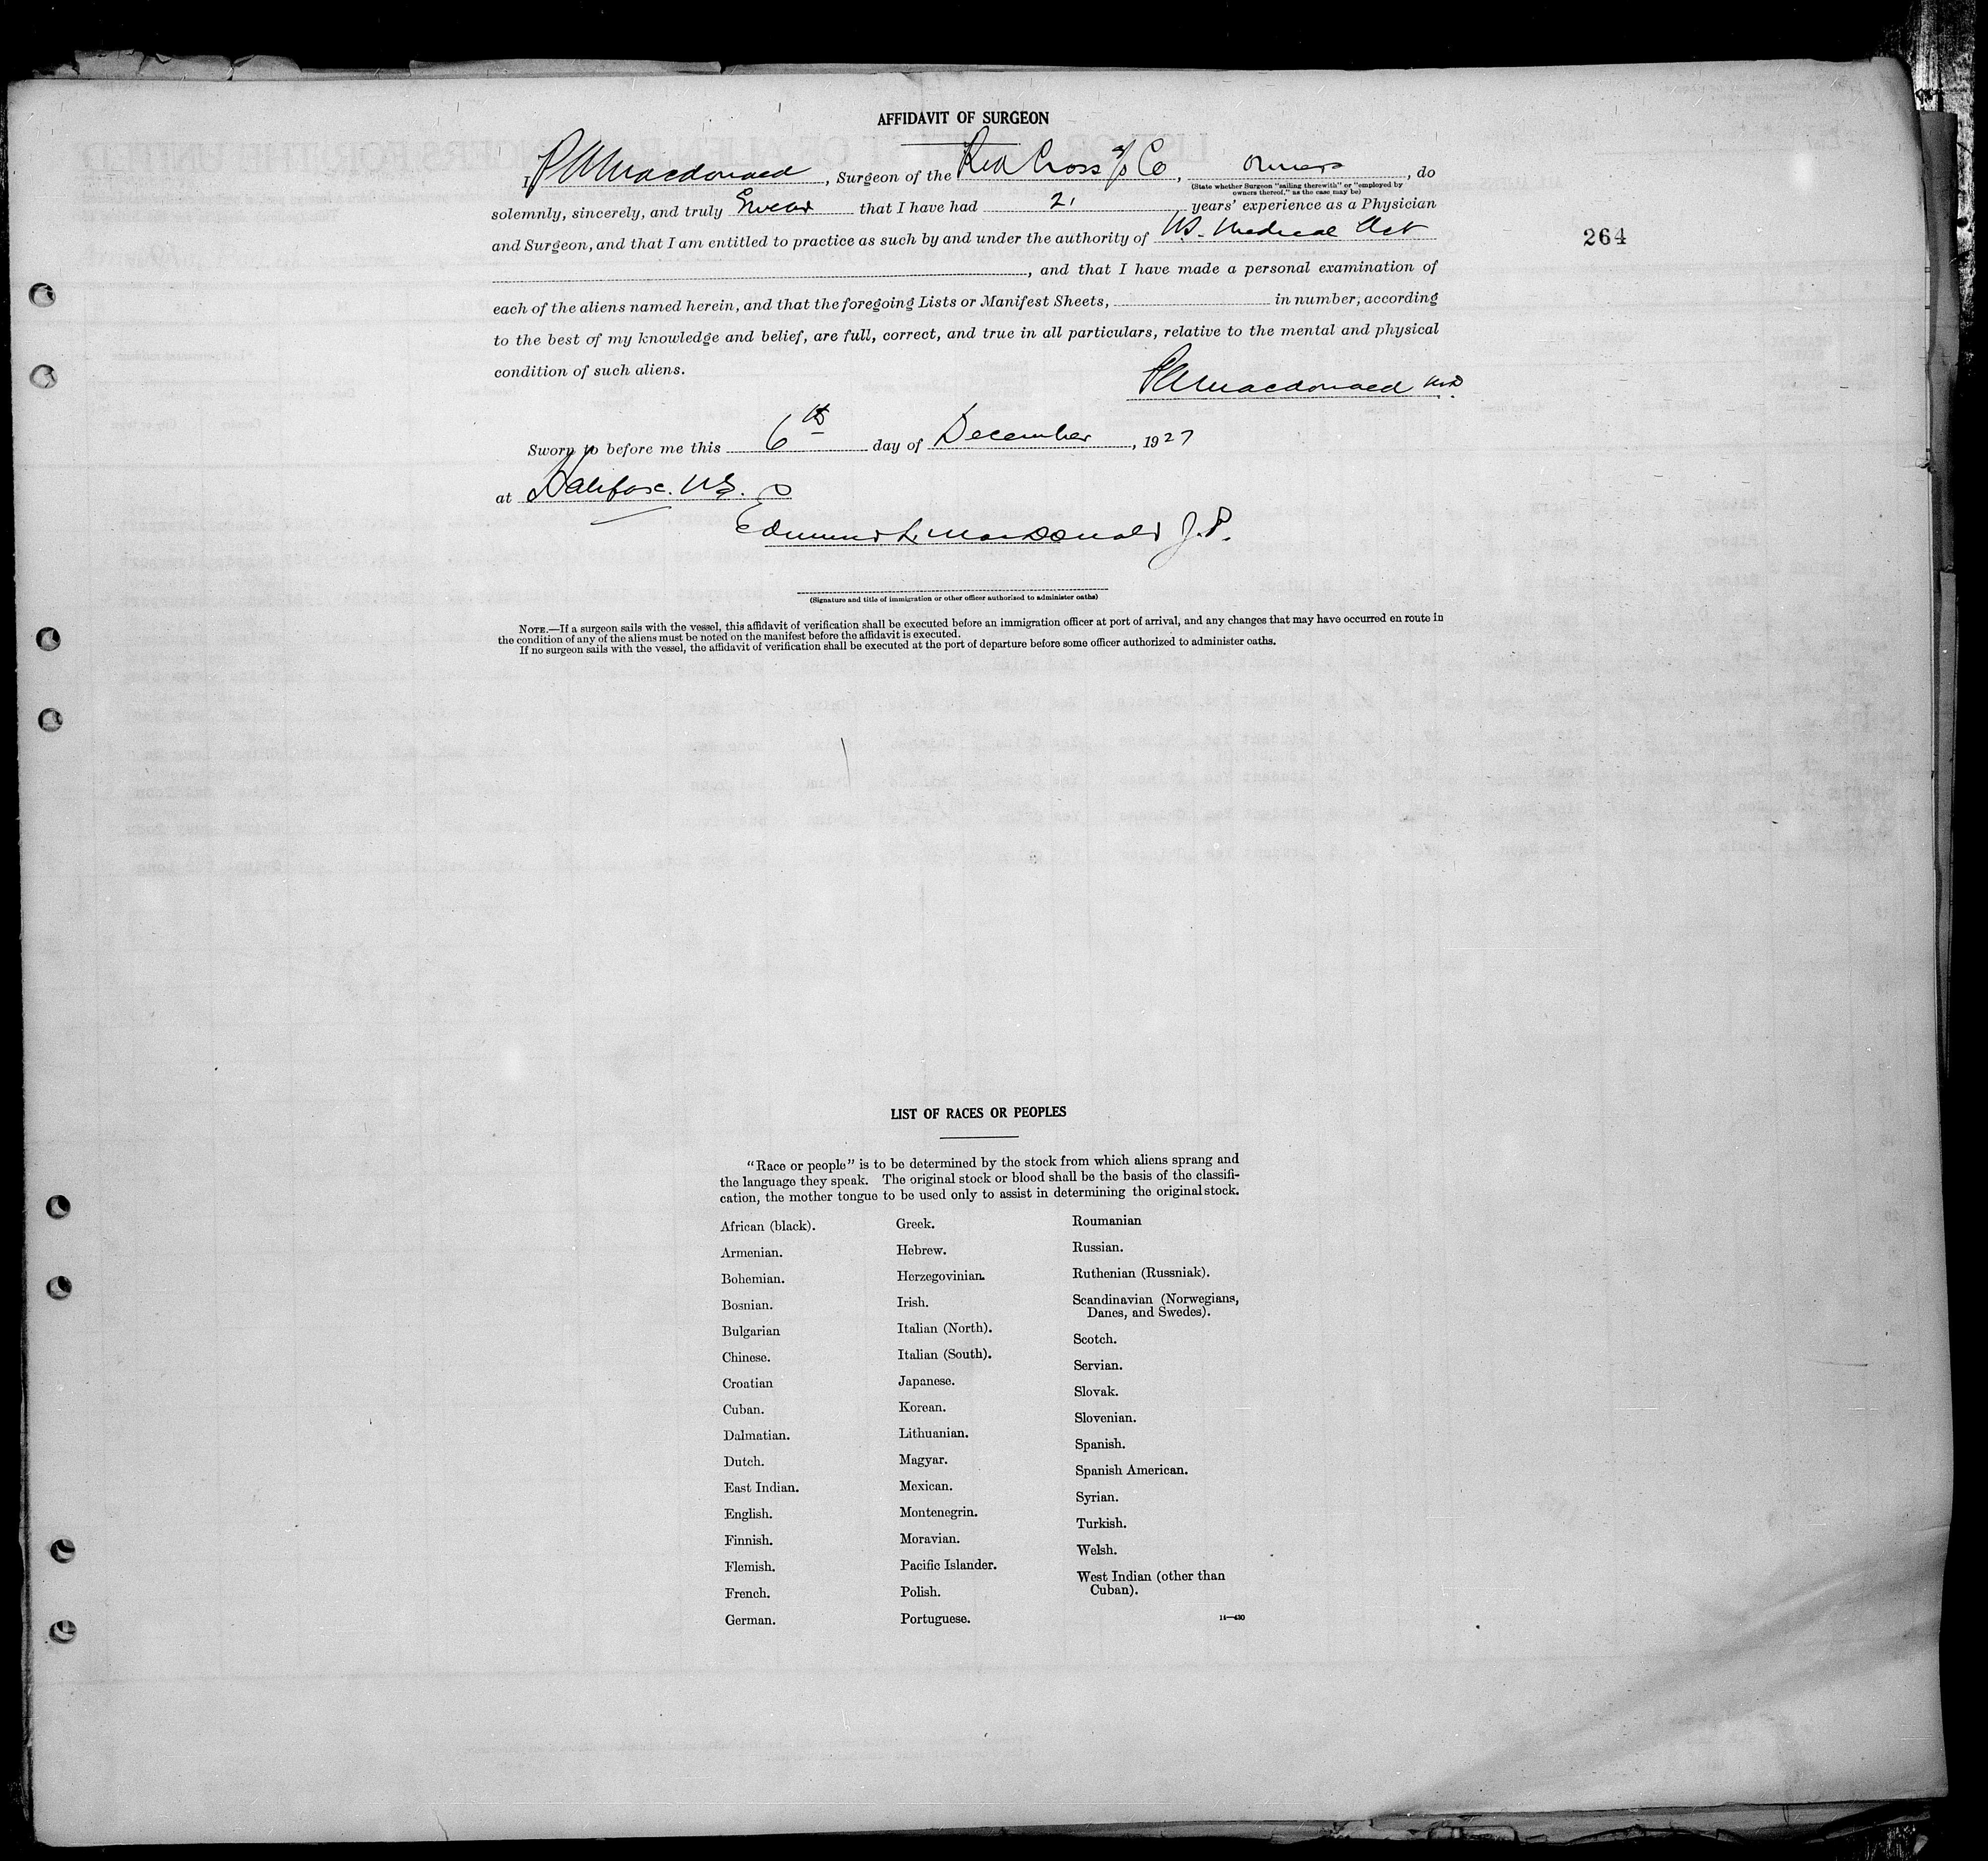 AFFIDAVIT OF SURGEON
I, P A Macdonald, Surgeon of the Red Cross S/S Co, owners, do
(State whether Surgeon "sailing therewith" or "employed by
owners thereof," as the case may be)
solemnly, sincerely, and truly Swear that I have had 21 years' experience as a Physician
and Surgeon, and that I am entitled to practice as such by and under the authority of N.S. Medical Act
264
, and that I have made a personal examination of
each of the aliens named herein, and that the foregoing Lists or Manifest Sheets, in number, according
to the best of my knowledge and belief, are full, correct, and true in all particulars, relative to the mental and physical
condition of such aliens.
P A Macdonald MD.
Sworn to before me this 6th day of December, 1927
at Halifax. N.S.
Edmund L. MacDonald J.P.
(Signature and title of immigration or other officer authorized to administer oaths)
NOTE.—If a surgeon sails with the vessel, this affidavit of verification shall be executed before an immigration officer at port of arrival, and any changes that may have occurred en route in
the condition of any of the aliens must be noted on the manifest before the affidavit is executed.
If no surgeon sails with the vessel, the affidavit of verification shall be executed at the port of departure before some officer authorized to administer oaths.
LIST OF RACES OR PEOPLES
"Race or people" is to be determined by the stock from which aliens sprang and
the language they speak. The original stock or blood shall be the basis of the classifi-
cation, the mother tongue to be used only to assist in determining the original stock.
African (black).
Armenian.
Bohemian.
Bosnian.
Bulgarian
Chinese.
Croatian
Cuban.
Dalmatian.
Dutch.
East Indian.
English.
Finnish.
Flemish.
French.
German.
Greek.
Hebrew.
Herzegovinian.
Irish.
Italian (North).
Italian (South).
Japanese.
Korean.
Lithuanian.
Magyar.
Mexican.
Montenegrin.
Moravian.
Pacific Islander.
Polish.
Portuguese.
Roumanian
Russian.
Ruthenian (Russniak).
Scandinavian (Norwegians,
Danes, and Swedes).
Scotch.
Servian.
Slovak.
Slovenian.
Spanish.
Spanish American.
Syrian.
Turkish.
Welsh.
West Indian (other than
Cuban).
14—430